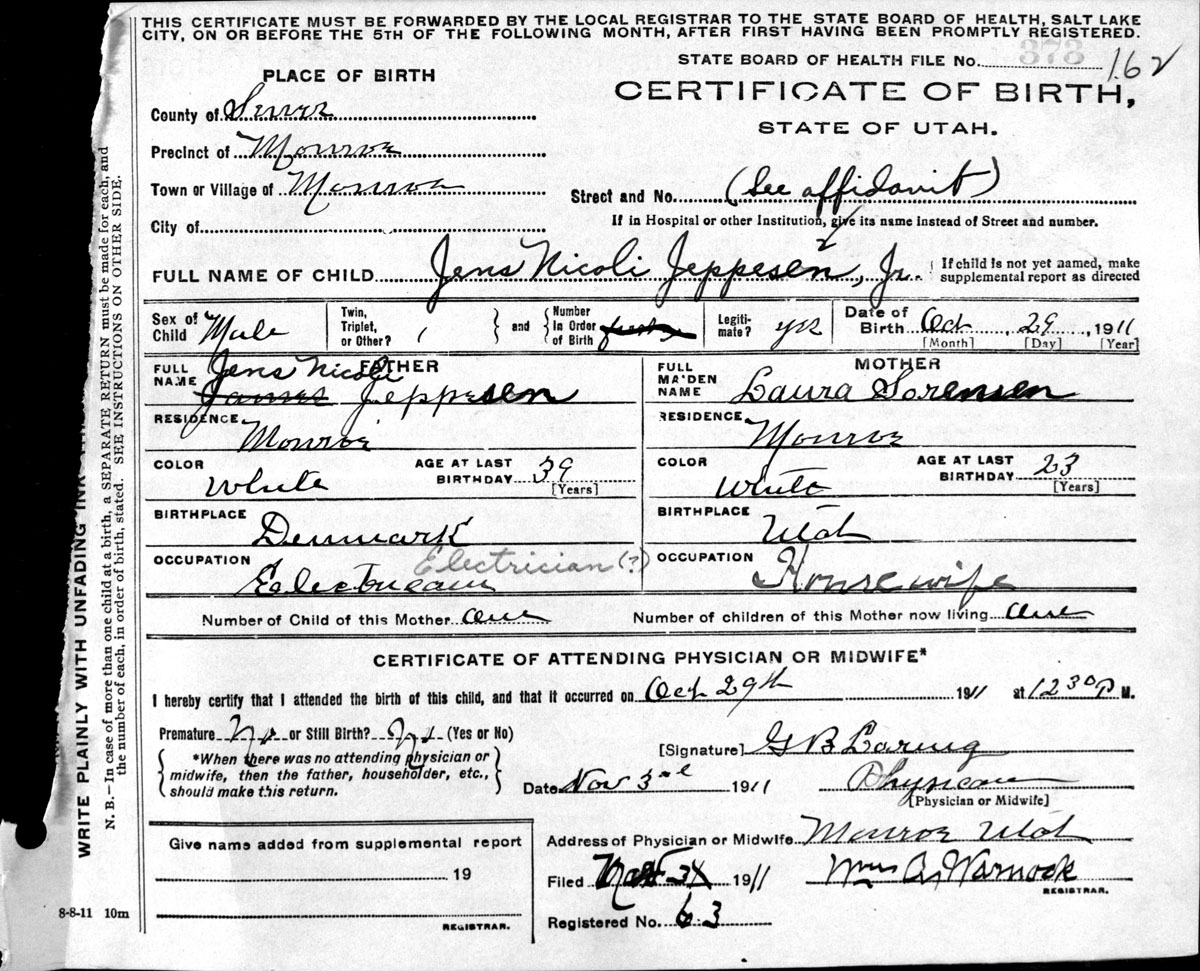 THIS CERTIFICATE MUST BE FORWARDED BY THE LOCAL REGISTRAR TO THE STATE BOARD OF HEALTH, SALT LAKE
CITY, ON OR BEFORE THE 5TH OF THE FOLLOWING MONTH, AFTER FIRST HAVING BEEN PROMPTLY REGISTERED.
STATE BOARD OF HEALTH FILE No. 373 162
PLACE OF BIRTH
CERTIFICATE OF BIRTH,
STATE OF UTAH.
County of Sevier
Precinct of Monroe
Town or Village of Monroe
Street and No. (See affidavit)
If in Hospital or other Institution, give its name instead of Street and number.
City of
FULL NAME OF CHILD Jens Nicoli Jeppesen, Jr. { If child is not yet named, make
supplemental report as directed
Sex of Child Male
Twin, Triplet, or Other? 1 } and { Number In Order of Birth
Legiti-mate? yes
Date of Birth Oct, 29, 1911
[Month] [Day] [Year]
FATHER
FULL NAME Jens Nicoli James Jeppesen
MOTHER
FULL MAIDEN NAME Laura Sorensen
RESIDENCE Monroe
RESIDENCE Monroe
COLOR White AGE AT LAST BIRTHDAY 39 [Years]
COLOR White AGE AT LAST BIRTHDAY 23 [Years]
BIRTHPLACE Denmark
BIRTHPLACE Utah
OCCUPATION Electrician Electrician (?)
OCCUPATION Housewife
Number of Child of this Mother One
Number of children of this Mother now living One
CERTIFICATE OF ATTENDING PHYSICIAN OR MIDWIFE*
I hereby certify that I attended the birth of this child, and that it occurred on Oct 29th 1911 at 12 30 P M.
Premature No or Still Birth? No (Yes or No)
{ *When there was no attending physician or
midwife, then the father, householder, etc.,
should make this return. }
[Signature] G B Laring
Date Nov 3rd 1911 Physician
[Physician or Midwife]
Give name added from supplemental report
19
REGISTRAR.
Address of Physician or Midwife Monroe Utah
Filed 1911 Wm A. Warnock
REGISTRAR.
Registered No. 63
8-8-11 10m
WRITE PLAINLY WITH UNFADING INK
N. B.—In case of more than one child at a birth, a SEPARATE RETURN must be made for each, and
the number of each, in order of birth, stated. SEE INSTRUCTIONS ON OTHER SIDE.